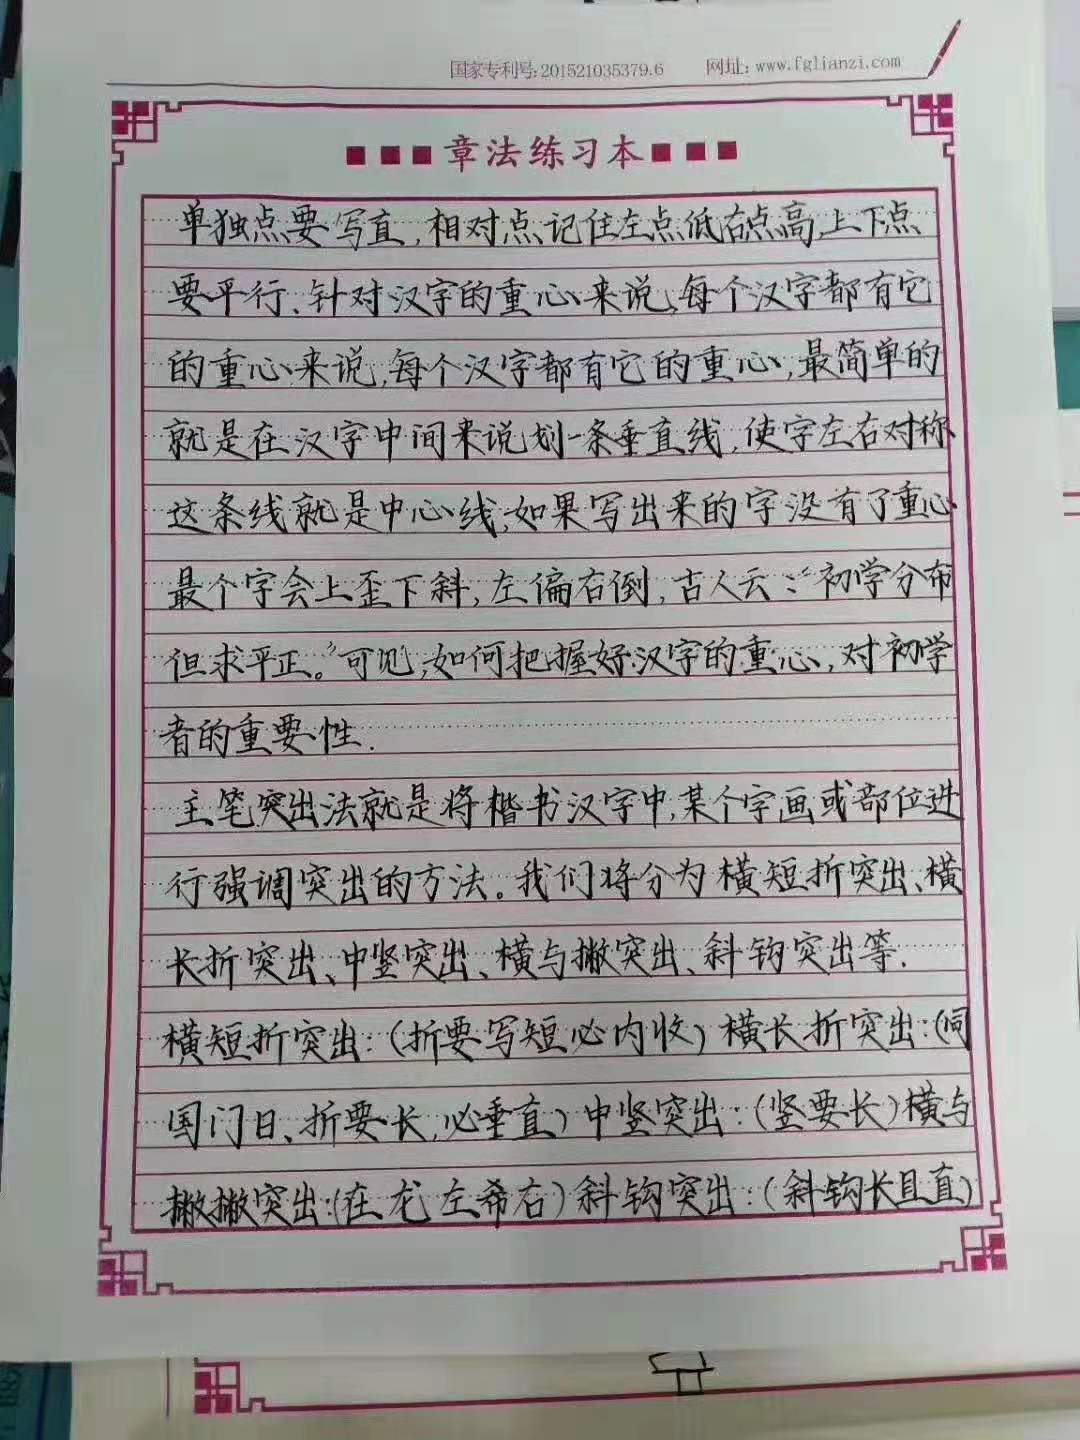 国家专利号:201521035379.6 网址:www.fglianzi.com
章法练习本
单独点要写直,相对点记住左点低右点高,上下点
要平行、针对汉字的重心来说,每个汉字都有它
的重心来说,每个汉字都有它的重心,最简单的
就是在汉字中间来说划一条垂直线,使字左右对称
这条线就是中心线,如果写出来的字没有了重心
最个字会上歪下斜,左偏右倒,古人云:“初学分布
但求平正。”可见,如何把握好汉字的重心,对初学
者的重要性.
主笔突出法就是将楷书汉字中,某个字画或部位进
行强调突出的方法。我们将分为横短折突出、横
长折突出、中竖突出、横与撇突出、斜钩突出等.
横短折突出:(折要写短必内收)横长折突出:(同
国门日、折要长,必垂直)中竖突出:(竖要长)横与
撇撇突出:(在龙左希右)斜钩突出:(斜钩长且直)